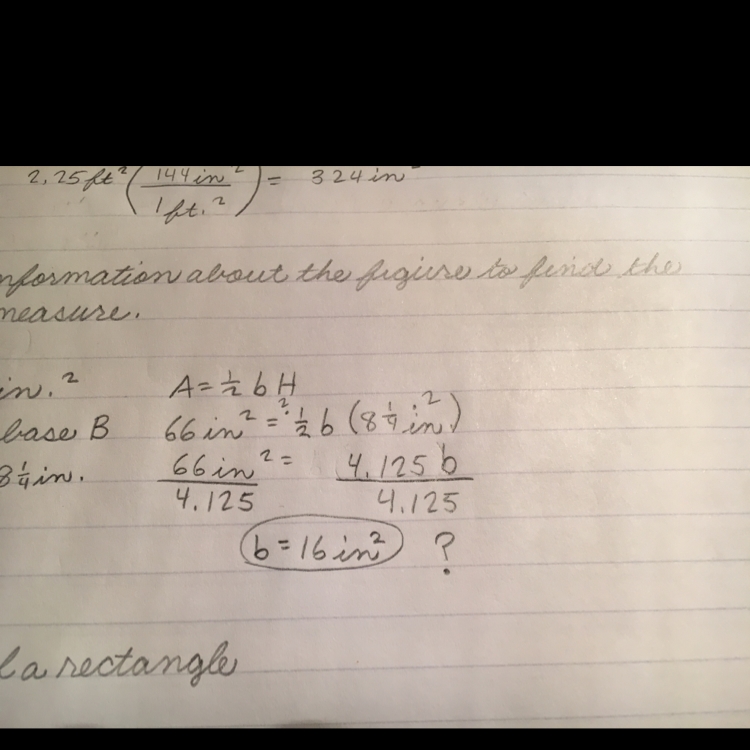 2.25 ft² (144 in² / 1 ft.²) = 324 in²
nformation about the figure to find the
measure.
in.² A = ½ b H
base B 66 in² = ½ b (8 ¼ in²)
8¼ in. 66 in² = 4.125 b
4.125 4.125
b = 16 in² ?
l a rectangle